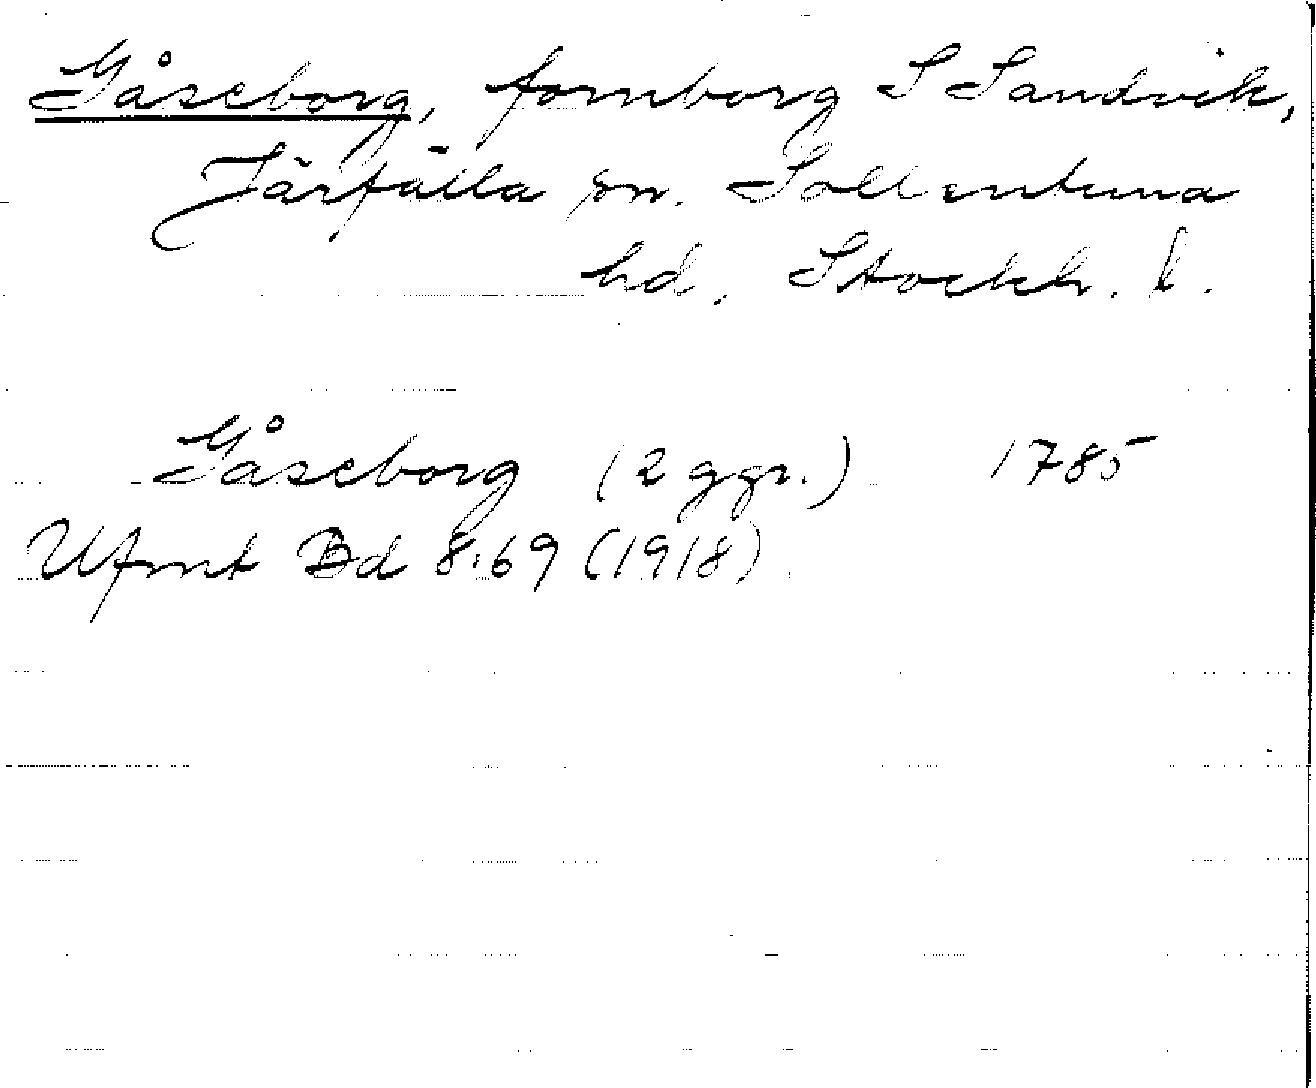 Gåseborg, fornborg S Sandvik,
Järfälla sn. Sollentuna
hd. Stockh. l.
Gåseborg (2 ggr.) 1785
Ufmt Bd 8:69 (1918)